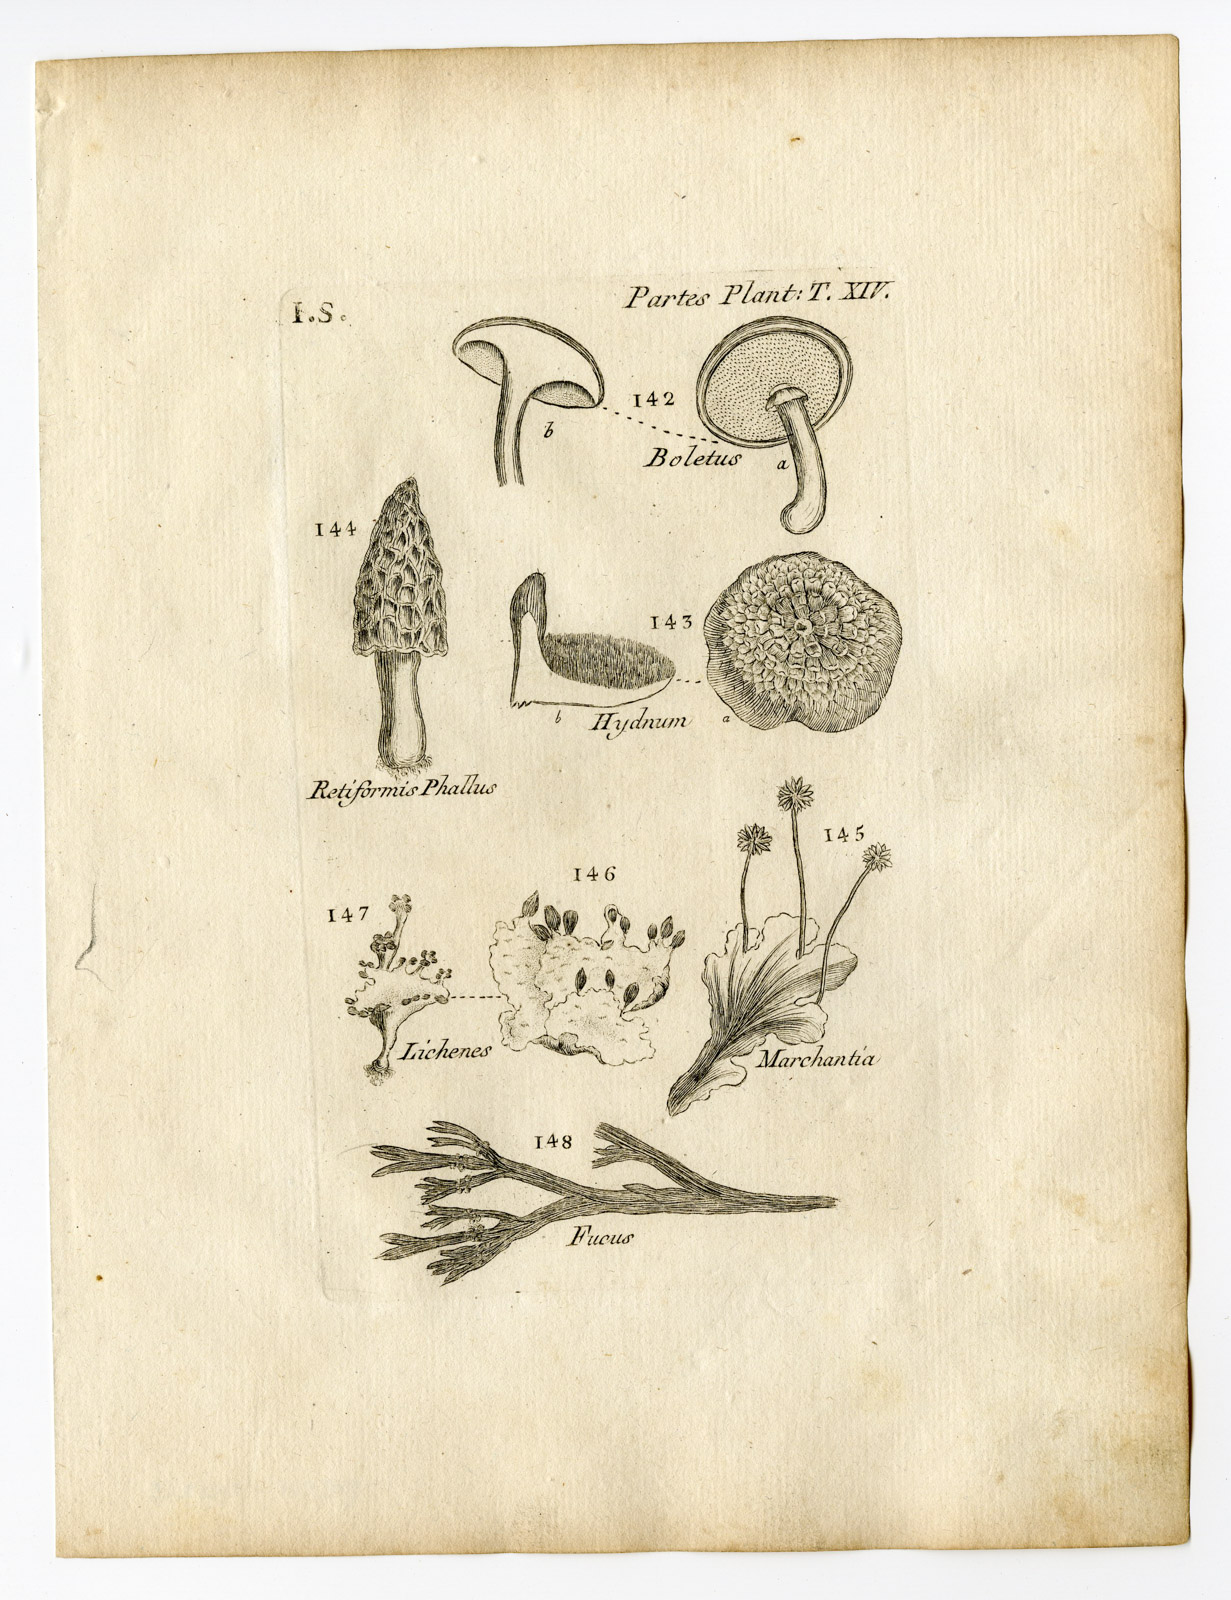 I.S.
Partes Plant: T. XIV.
142
b
Boletus
a
144
143
b
Hydnum
a
Retiformis Phallus
145
146
147
Lichenes
Marchantia
148
Fucus